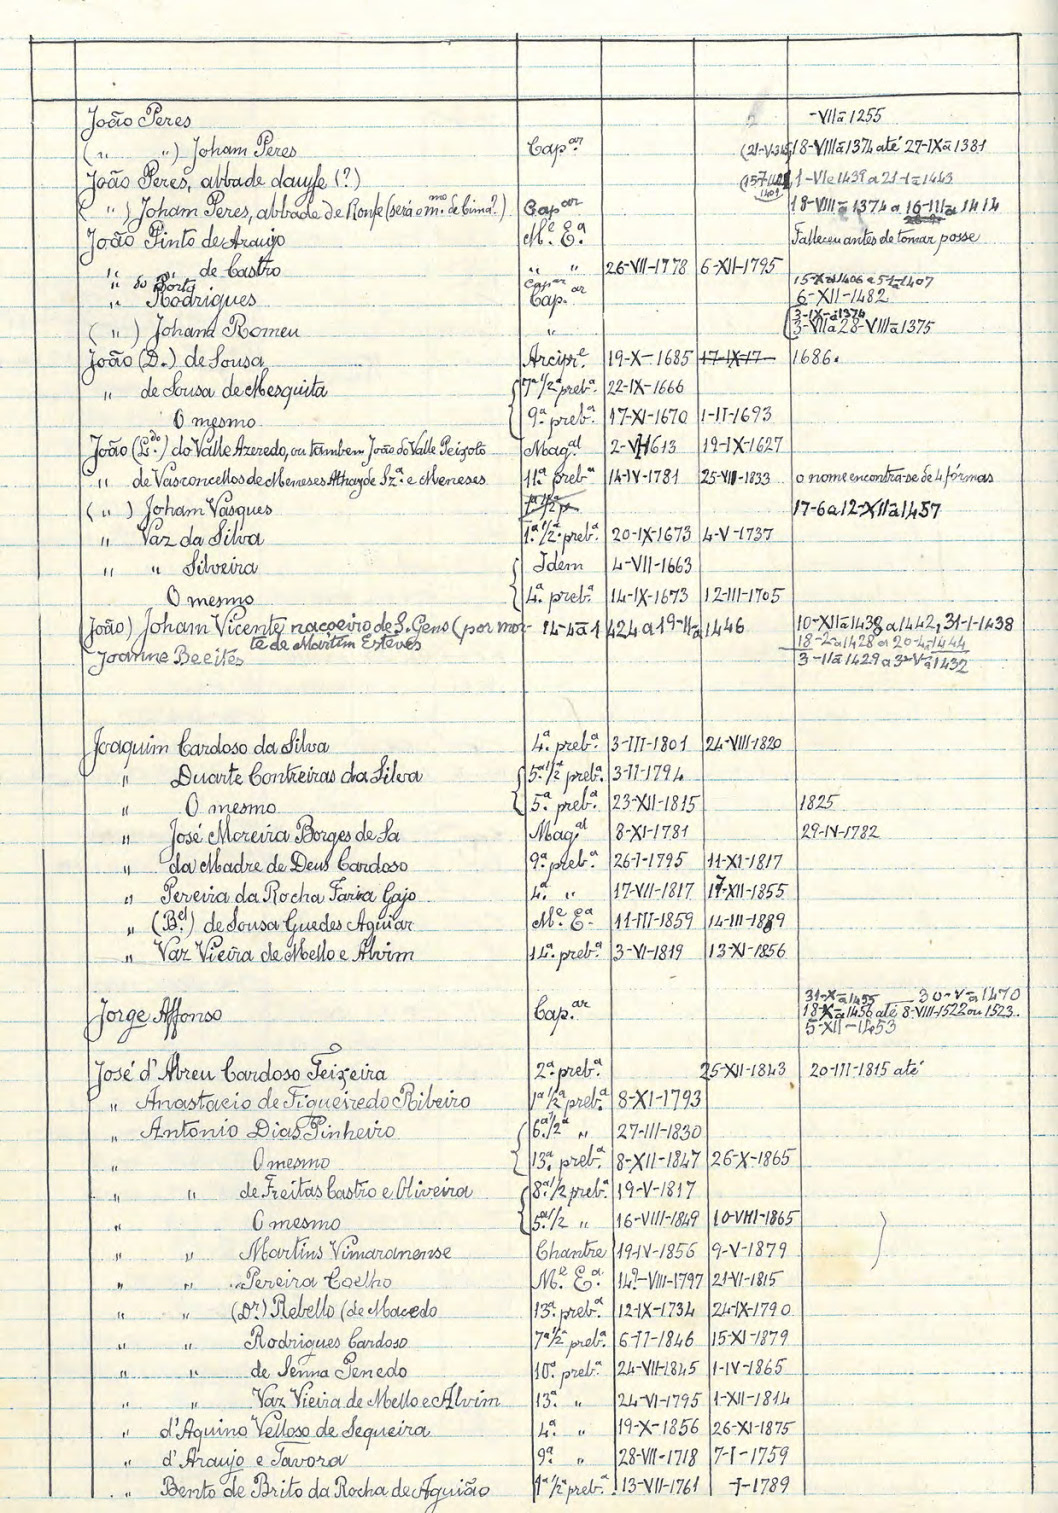 João Peres -VIIa1255
( " " ) Joham Peres Cap.ar 18-VIIIa1374 até 27-IXa1381
João Peres, abbade dauyfe (?) 1-VIe1439 a 21-Ia1443
( " ) Joham Peres, abbade de Ronfe (será o m.mo de Cima?) Cap.ar 18-VIIIa1374 a 16-IIIa1414
João Pinto de Araujo M.e E.a Falleceu antes de tomar posse
" " de Castro " " 26-VII-1778 6-XII-1795
" do Porto Cap.ar 15-Xa1406 a 5-1-1407
" Rodrigues Cap.ar 6-XII-1482
3-IX-a1374
( " ) Johane Romeu " 3-VIIa28-VIIIa1375
João (D.) de Sousa Arcipr.e 19-X-1685 17-IX-17 1686.
" de Sousa de Mesquita 7.a 1/2 preb.a 22-IX-1666
O mesmo 9.a preb.a 17-XI-1670 1-II-1693
João (L.do) do Valle Azeredo, ou tambem João do Valle Peixoto Mag.al 2-VII-1613 19-IX-1627
" de Vasconcellos de Meneses Athayde Sz.a e Meneses 11.a preb.a 14-IV-1781 25-VIII-1833 o nome encontra-se de 4 fórmas
( " ) Joham Vasques 17-6a12-XIIa1457
" Vaz da Silva 1.a 1/2 preb.a 20-IX-1673 4-V-1737
" " Silveira Idem 4-VII-1663
O mesmo 4.a preb.a 14-IX-1673 12-III-1705
(João) Joham Vicente raçoeiro de S. Gens (por mor- 14-4a1424 a 19-IIa1446 10-XIIa1438 a 1442, 31-1-1438
te de Martim Esteves 18-2-a1428 a 20-4-1444
Joanne Beeites 3-IIa1429 a 3-Va1432
Joaquim Cardoso da Silva 4.a preb.a 3-III-1801 24-VIII-1820
" Duarte Contreiras da Silva 5.a 1/2 preb.a 3-II-1794
" O mesmo 5.a preb.a 23-XII-1815 1825
" José Moreira Borges de Sa Mag.al 8-XI-1781 29-IV-1782
" da Madre de Deus Cardoso 9.a preb.a 26-I-1795 11-XI-1817
" Pereira da Rocha Faria Gajo 4.a " 17-VII-1817 17-XII-1855
" (B.el) de Sousa Guedes Aguiar M.e E.a 11-III-1859 14-III-1889
" Vaz Vieira de Mello e Alvim 14.a preb.a 3-VI-1819 13-XI-1856
31-Xa1455 30-V-a1470
Jorge Affonso Cap.ar 18-Xa1456 até 8-VIII-1522 ou 1523.
5-XII-1453
José d'Abreu Cardoso Teixeira 2.a preb.a 25-XII-1843 20-III-1815 até
" Anastacio de Figueiredo Ribeiro 1.a 1/2 preb.a 8-XI-1793
" Antonio Dias Pinheiro 6.a 1/2 " 27-III-1830
" O mesmo 13.a preb.a 8-XII-1847 26-X-1865
" " de Freitas Castro e Oliveira 8.a 1/2 preb.a 19-V-1817
" O mesmo 5.a 1/2 " 16-VIII-1849 10-VIII-1865
" " Martins Vimaranense Chantre 19-IV-1856 9-V-1879
" " Pereira Coelho M.e E.a 14-VIII-1797 21-VI-1815
" " (Dr.) Rebello (de Macedo 13.a preb.a 12-IX-1734 24-IX-1790
" " Rodrigues Cardoso 7.a 1/2 preb.a 6-II-1846 15-XI-1879
" " de Senna Penedo 10.a preb.a 24-VII-1845 1-IV-1865
" " Vaz Vieira de Mello e Alvim 13.a " 24-VI-1795 1-XII-1814
" d'Aquino Velloso de Sequeira 4.a " 19-X-1856 26-XI-1875
" d'Araujo e Tavora 9.a " 28-VII-1718 7-I-1759
" Bento de Brito da Rocha de Aguião 1.a 1/2 preb.a 13-VII-1761 -I-1789